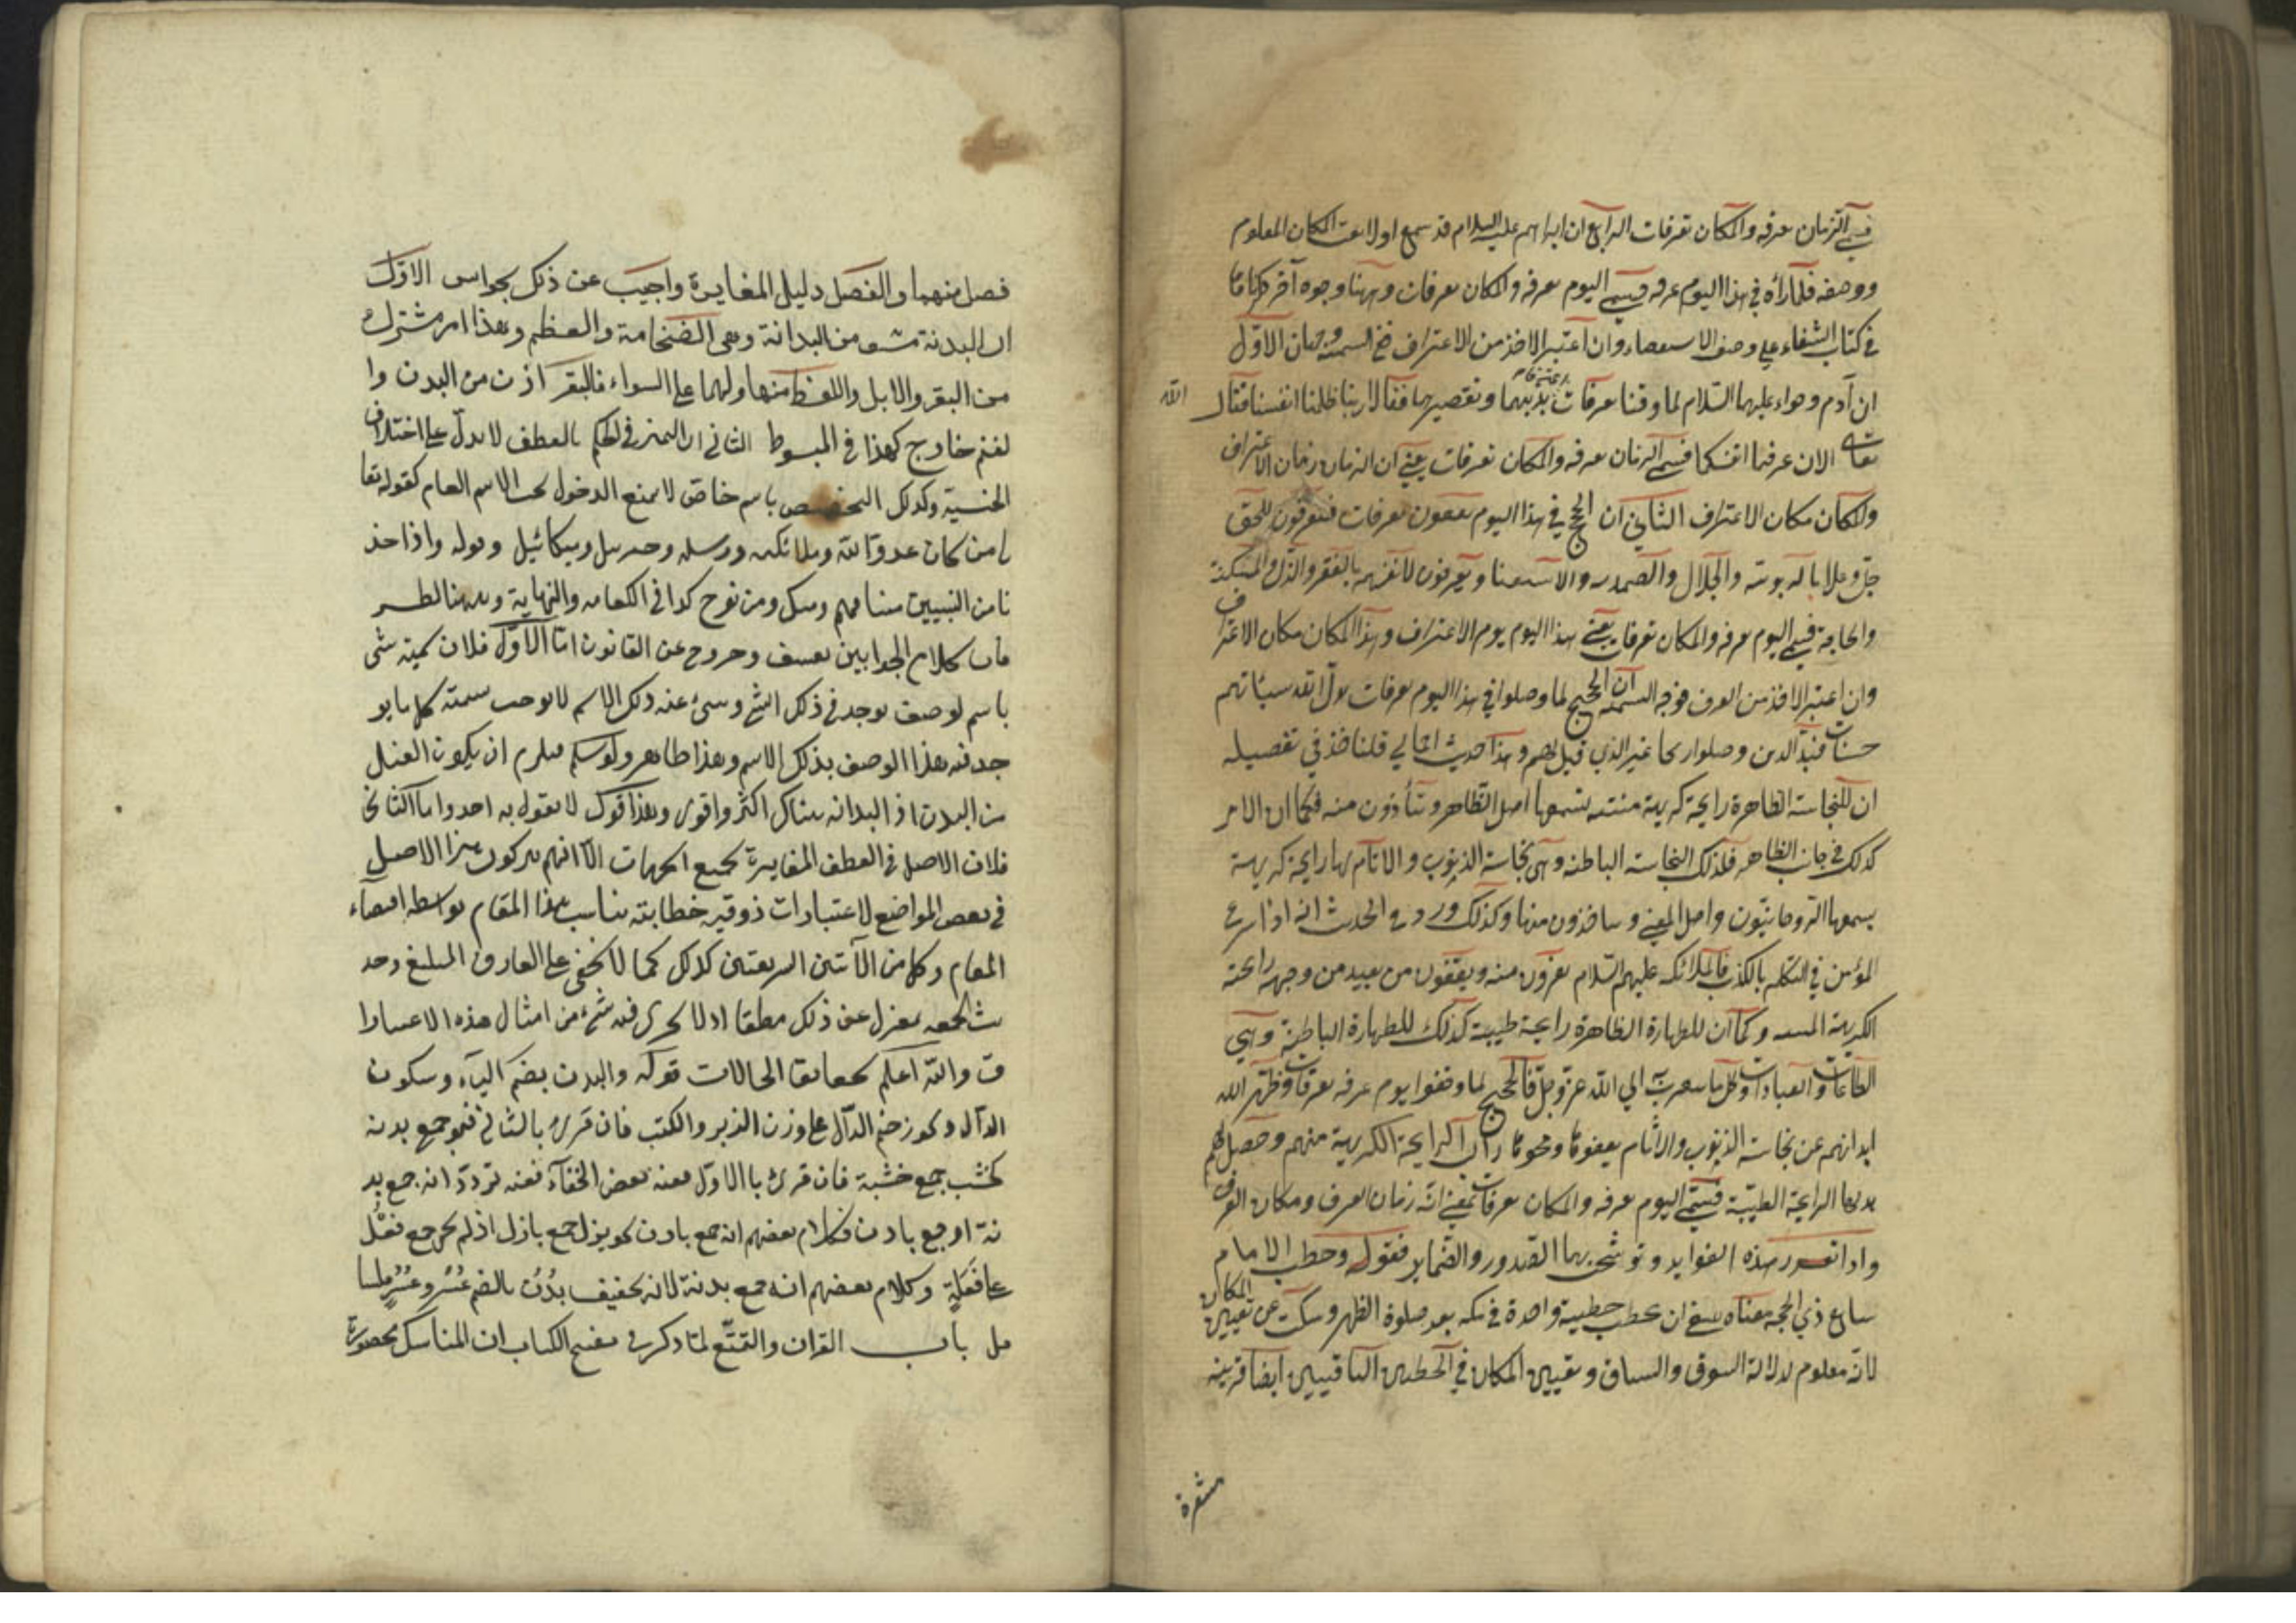 فسمى الزمان عرفه والمكان بعرفات الرابع ان ابراهيم عليه السلام قد سمع اولا نعت المكان المعلوم
ووصفه فلما رأه في هذا اليوم عرفه فسمى اليوم عرفه والمكان بعرفات وههنا وجوه آخر ذكرناها
في كتاب الشفاء على وصف الاستقصاء وان اعتبر الاخذ من الاعتراف فخ التسمية وجهان الاول
ان آدم وحواء عليهما السلام لما وقفا بعرفات بذنبهما وتقصيرهما فقالا ربنا ظلمنا انفسنا فقال الله
تعالى الان عرفتما انفسكما فسمى الزمان عرفه والمكان بعرفات يعنى ان الزمان زمان الاعتراف
والمكان مكان الاعتراف الثاني ان الحجيج في هذا اليوم يقفون بعرفات فيعرفون للحق
جل وعلا بالربوبيته والجلال والصمديه والاستغنا ويعرفون لانفسهم بالفقر والذل والمسكنة
والحاجه فسمى اليوم عرفه والمكان بعرفات يعنى هذا اليوم يوم الاعتراف وهذا المكان مكان الاعتراف
وان اعتبر الاخذ من العرف فوجه التسمية ان الحجيج لما وصلوا في هذا اليوم بعرفات بدل الله سيئاتهم
حسنات فبدل الذين وصلوا غير الذي قيل لهم وهذا حديث اجمالي قلنا خذ في تفصيله
ان للنجاسة الظاهرة رايحة كريهة منتنه يشمها اهل الظاهر ويتأذون منه فكما ان الامر
كذلك في جانب الظاهر فكذلك النجاسة الباطنه وهي نجاسة الذنوب والاثام لها رايحة كريهة
يشمها الروحانيون واهل المعنى ويتأذون منها وكذلك ورد في الحديث انه اذا شرع
المؤمن في التكلم بالكذب فالملائكه عليهم السلام يفرون منه ويقفون من بعيد من وجهه رائحته
الكريهة المنتنه وكما ان للطهارة الظاهرة رايحة طيبة كذلك للطهارة الباطنة وهي
الطاعات والعبادات وكل ما يتقرب الي الله عز وجل فالحجيج لما وقفوا يوم عرفه بعرفات وطهر الله
ابدانهم عن نجاسة الذنوب والاثام يعفوها ومحوها زال الرايحة الكريهة منهم وحصل لهم
بدلها الرايحة الطيبة فسمى اليوم عرفه والمكان بعرفات بمعنى انه زمان العرف ومكان العرف
واذا تقرر هذه الفوايد وتوشحت بها الصدور والضماير فنقول وخطب الامام
سابع ذي الحجه معناه ينبغي ان يخطب خطبية واحدة في مكه بعد صلوة الظهر وسكت عن تعيين المكان
لانه معلوم لدلالة السوق والسباق وتعيين المكان في الخطبتين الباقيتين ايضا قرينه
مشعرة
فصل بينهما والفصل دليل المغايرة واجيب عن ذلك بجوابين الاول
ان البدنة مشتق من البدانة وهى الضخامة والعظم وهذا امر مشترك
بين البقر والابل واللفظ منها ولهما على السواء فالبقر اذن من البدن وا
لغنم خارج كهذا في المبسوط الثانى ان التميز في الحكم بالعطف لا يدل على اختلاف
الجنسية وكذلك التخصيص باسم خاص لا يمنع الدخول تحت الاسم العام كقوله تعا
لى من كان عدوا لله وملائكته ورسله وجبريل وميكائيل وقوله واذ اخذ
نا من النبيين ميثاقهم ومنك ومن نوح كذا في الكفايه والنهاية وههنا نظر
فان كلام الجوابين تعسف وخروج عن القانون اما الاول فلان تسمية شى
باسم لوصف يوجد في ذلك الشئ وينبئ عنه ذلك الاسم لا يوجب تسمية كل ما يو
جد فيه هذا الوصف بذلك الاسم وهذا ظاهر ولو سلم فيلزم ان يكون الفيل
من البدن اذ البدانه هناك اكثر واقوى وهذا قول لا يقول به احد واما الثانى
فلان الاصل في العطف المغايرة بجميع الجهات الا انهم يتركون هذا الاصل
في بعض المواضع لاعتبارات ذوقية خطابية يناسب هذا المقام بواسطه اقتضاء
المقام وكلا من الآيتين الشريفتين كذلك كما لا يخفى على العارف البليغ وحد
يث الجمعه بمعزل عن ذلك مطلقا اذ لا يجرى فيه شئ من امثال هذه الاعتبارا
ت والله اعلم بحقايق الحالات قوله والبدن بضم الباء وسكون
الدال وكوز ضم الدال على وزن الزبر والكتب فان قرئ بالثانى فهو جمع بدنة
كخشب جمع خشبة فان قرئ بالاول ففيه بعض الخفاء ففيه تردد انه جمع بد
نة او جمع بادن فكلام بعضهم انه جمع بادن كبزل جمع بازل اذ لم يجئ جمع فعل
على فعلة وكلام بعضهم انه جمع بدنة لانه تخفيف بدن بالضم عسر وعسر فليتا
مل باب القران والتمتع لما ذكر في مفتتح الكتاب ان المناسك محصورة